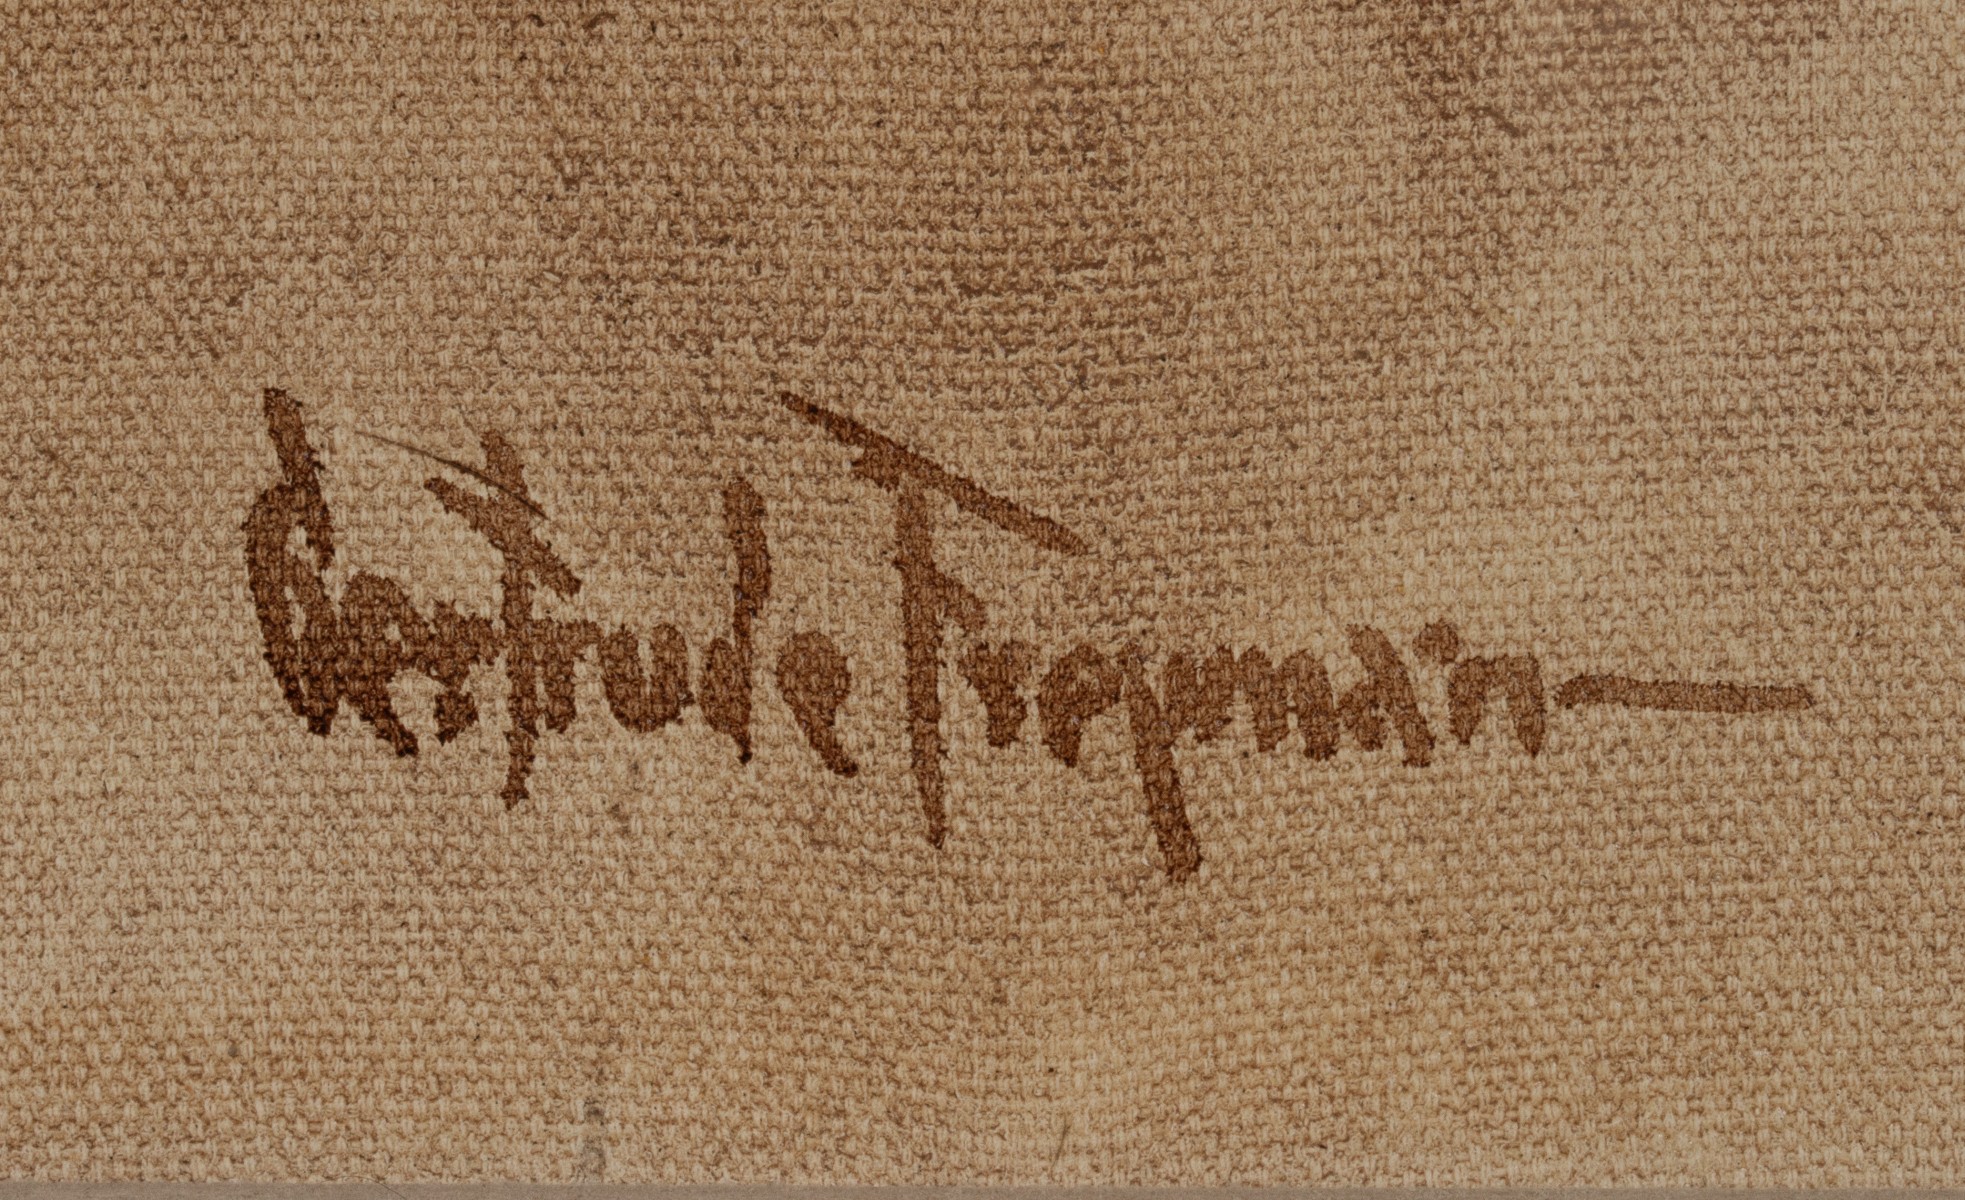 Gertrude Freyman